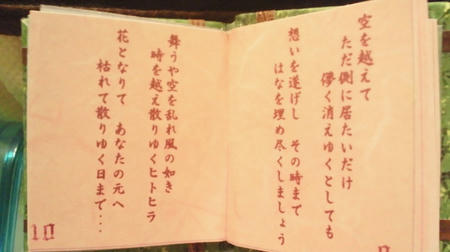 空を越えて
ただ側に居たいだけ
儚く消えゆくとしても
想いを遂げし その時まで
はなを埋め尽くしましょう
舞うや空を乱れ風の如き
時を越え散りゆくヒトヒラ
花となりて あなたの元へ
枯れて散りゆく日まで・・・
10